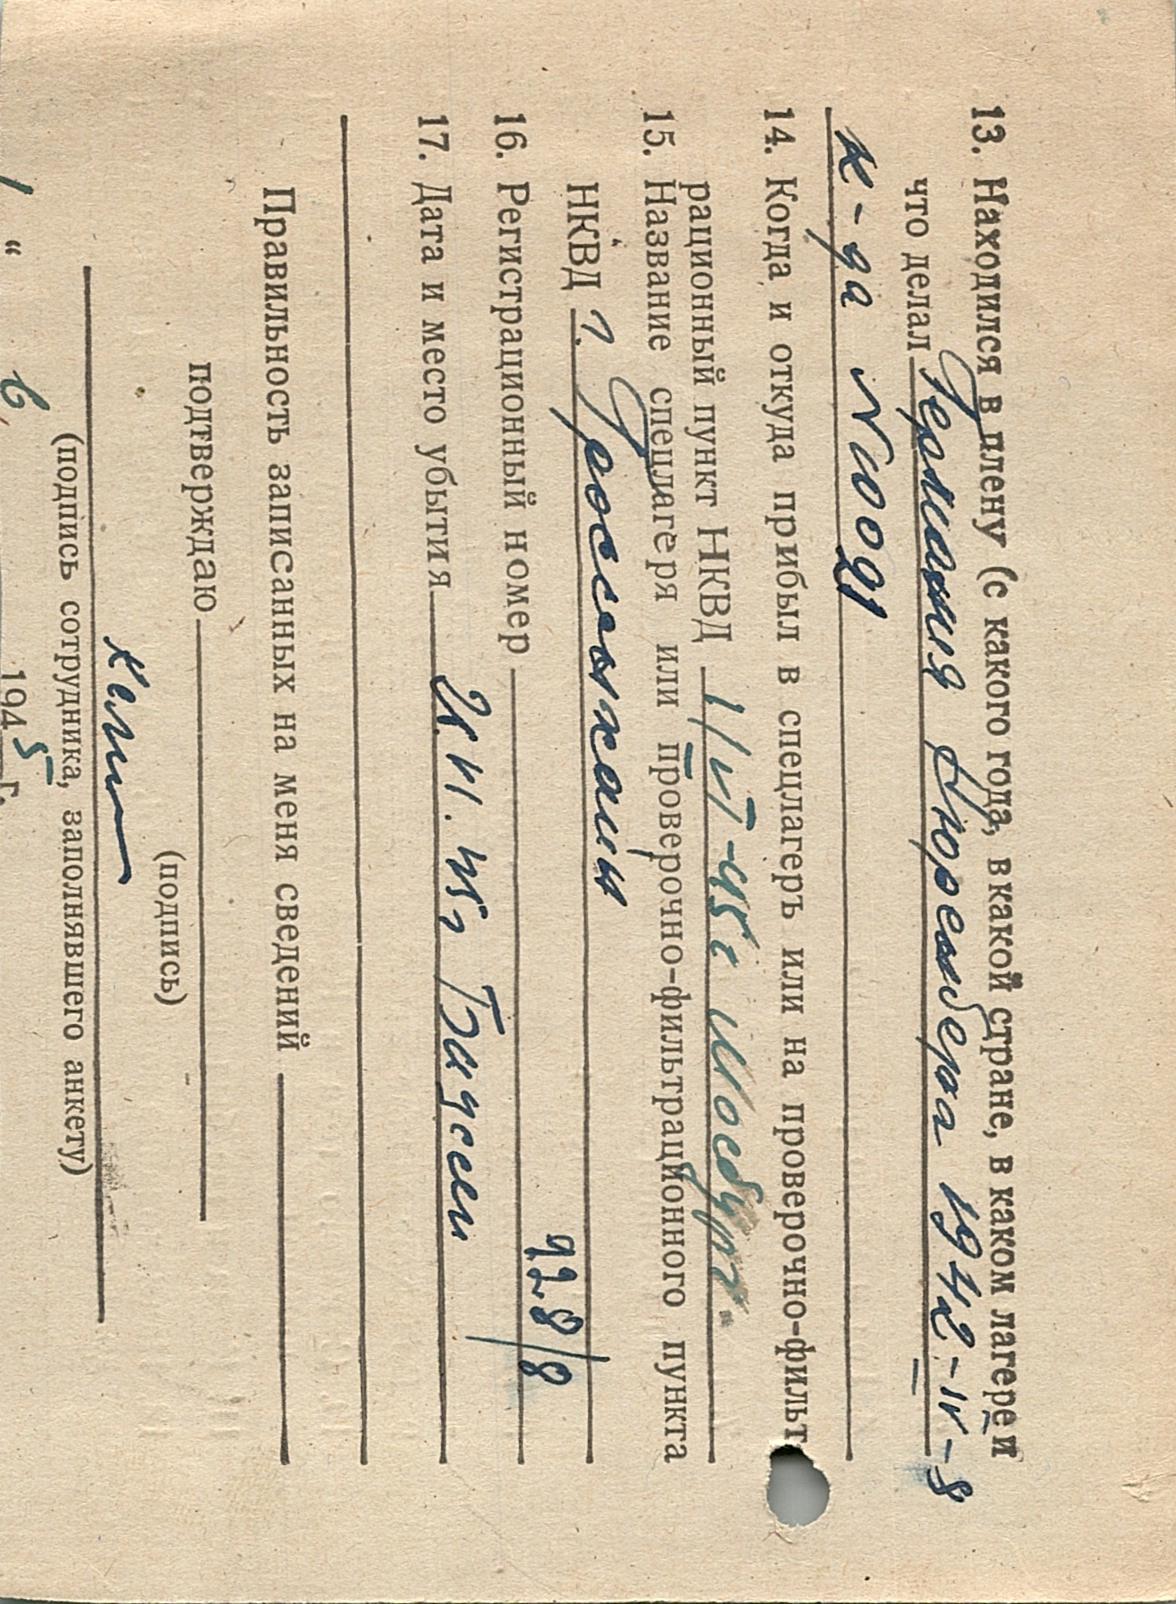 13. Находился в плену (с какого года, в какой стране, в каком лагере и
что делал Германия Нюренберга 1942-IV-8
к-да N 10021
14. Когда и откуда прибыл в спецлагерь или на проверочно-фильт
рационный пункт НКВД 1/VI-45г Мосбург.
15. Название спецлагеря или проверочно-фильтрационного пункта
НКВД г.
16. Регистрационный номер 928/8
17. Дата и место убытия VI. 45г
Правильность записанных на меня сведений
подтверждаю
(подпись)
(подпись сотрудника, заполнявшего анкету)
" 6 1945 г.